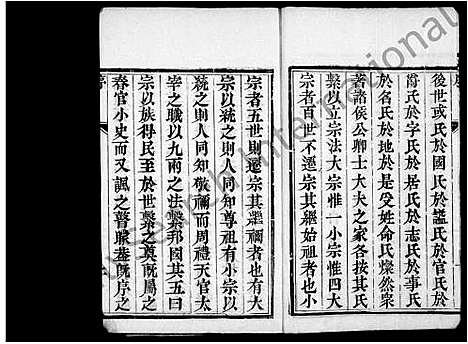 後世或氏於國氏於諡氏於官氏於
爵氏於字氏於居氏於志氏於事氏
於名氏於地於是受姓命氏燦然衆
著諸侯公卿士大夫之家各按其氏
繫以立宗法大宗惟一小宗惟四大
宗者百世不遷宗其繼始祖者也小
宗者五世則遷宗其繼禰者也有大
宗以統之則人同知尊祖有小宗以
統之則人同知敬禰而周禮天官太
宰之職以九兩之法繫邦國其五曰
宗以族得民至於世繫之奠旣屬之
春官小史而又諷之瞽矇葢旣序之
序
Research International